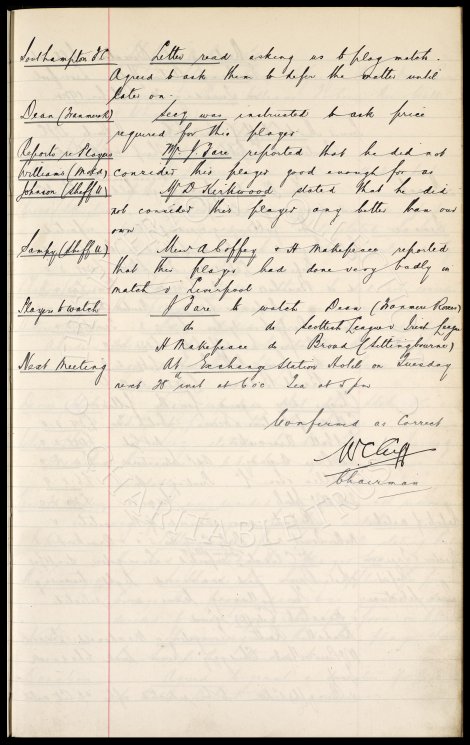 Southampton FC Letter read asking us to play match.
Agreed to ask them to defer the matter until
later on.
Dean (Tranmere R) Secy was instructed to ask price
required for this player
Reports re Players Mr J Fare reported that he did not
Williams (Moto) consider this player good enough for us
Johnson (Sheff U) Mr D Kirkwood stated that he did
not consider this player any better than our
own
Sampy (Sheff U) Messrs A Coffey & H Makepeace reported
that this player had done very badly in
match v Liverpool
Players to watch J Fare to watch Dean (Tranmere Rovers)
do do Scottish League v Irish League
H Makepeace do Broad (Sittingbourne)
Next Meeting At Exchange Station Hotel on Tuesday
next inst at 6 oc Tea at 5 pm
Confirmed as Correct
W C Cuff
Chairman
CHARITABLE TRUST